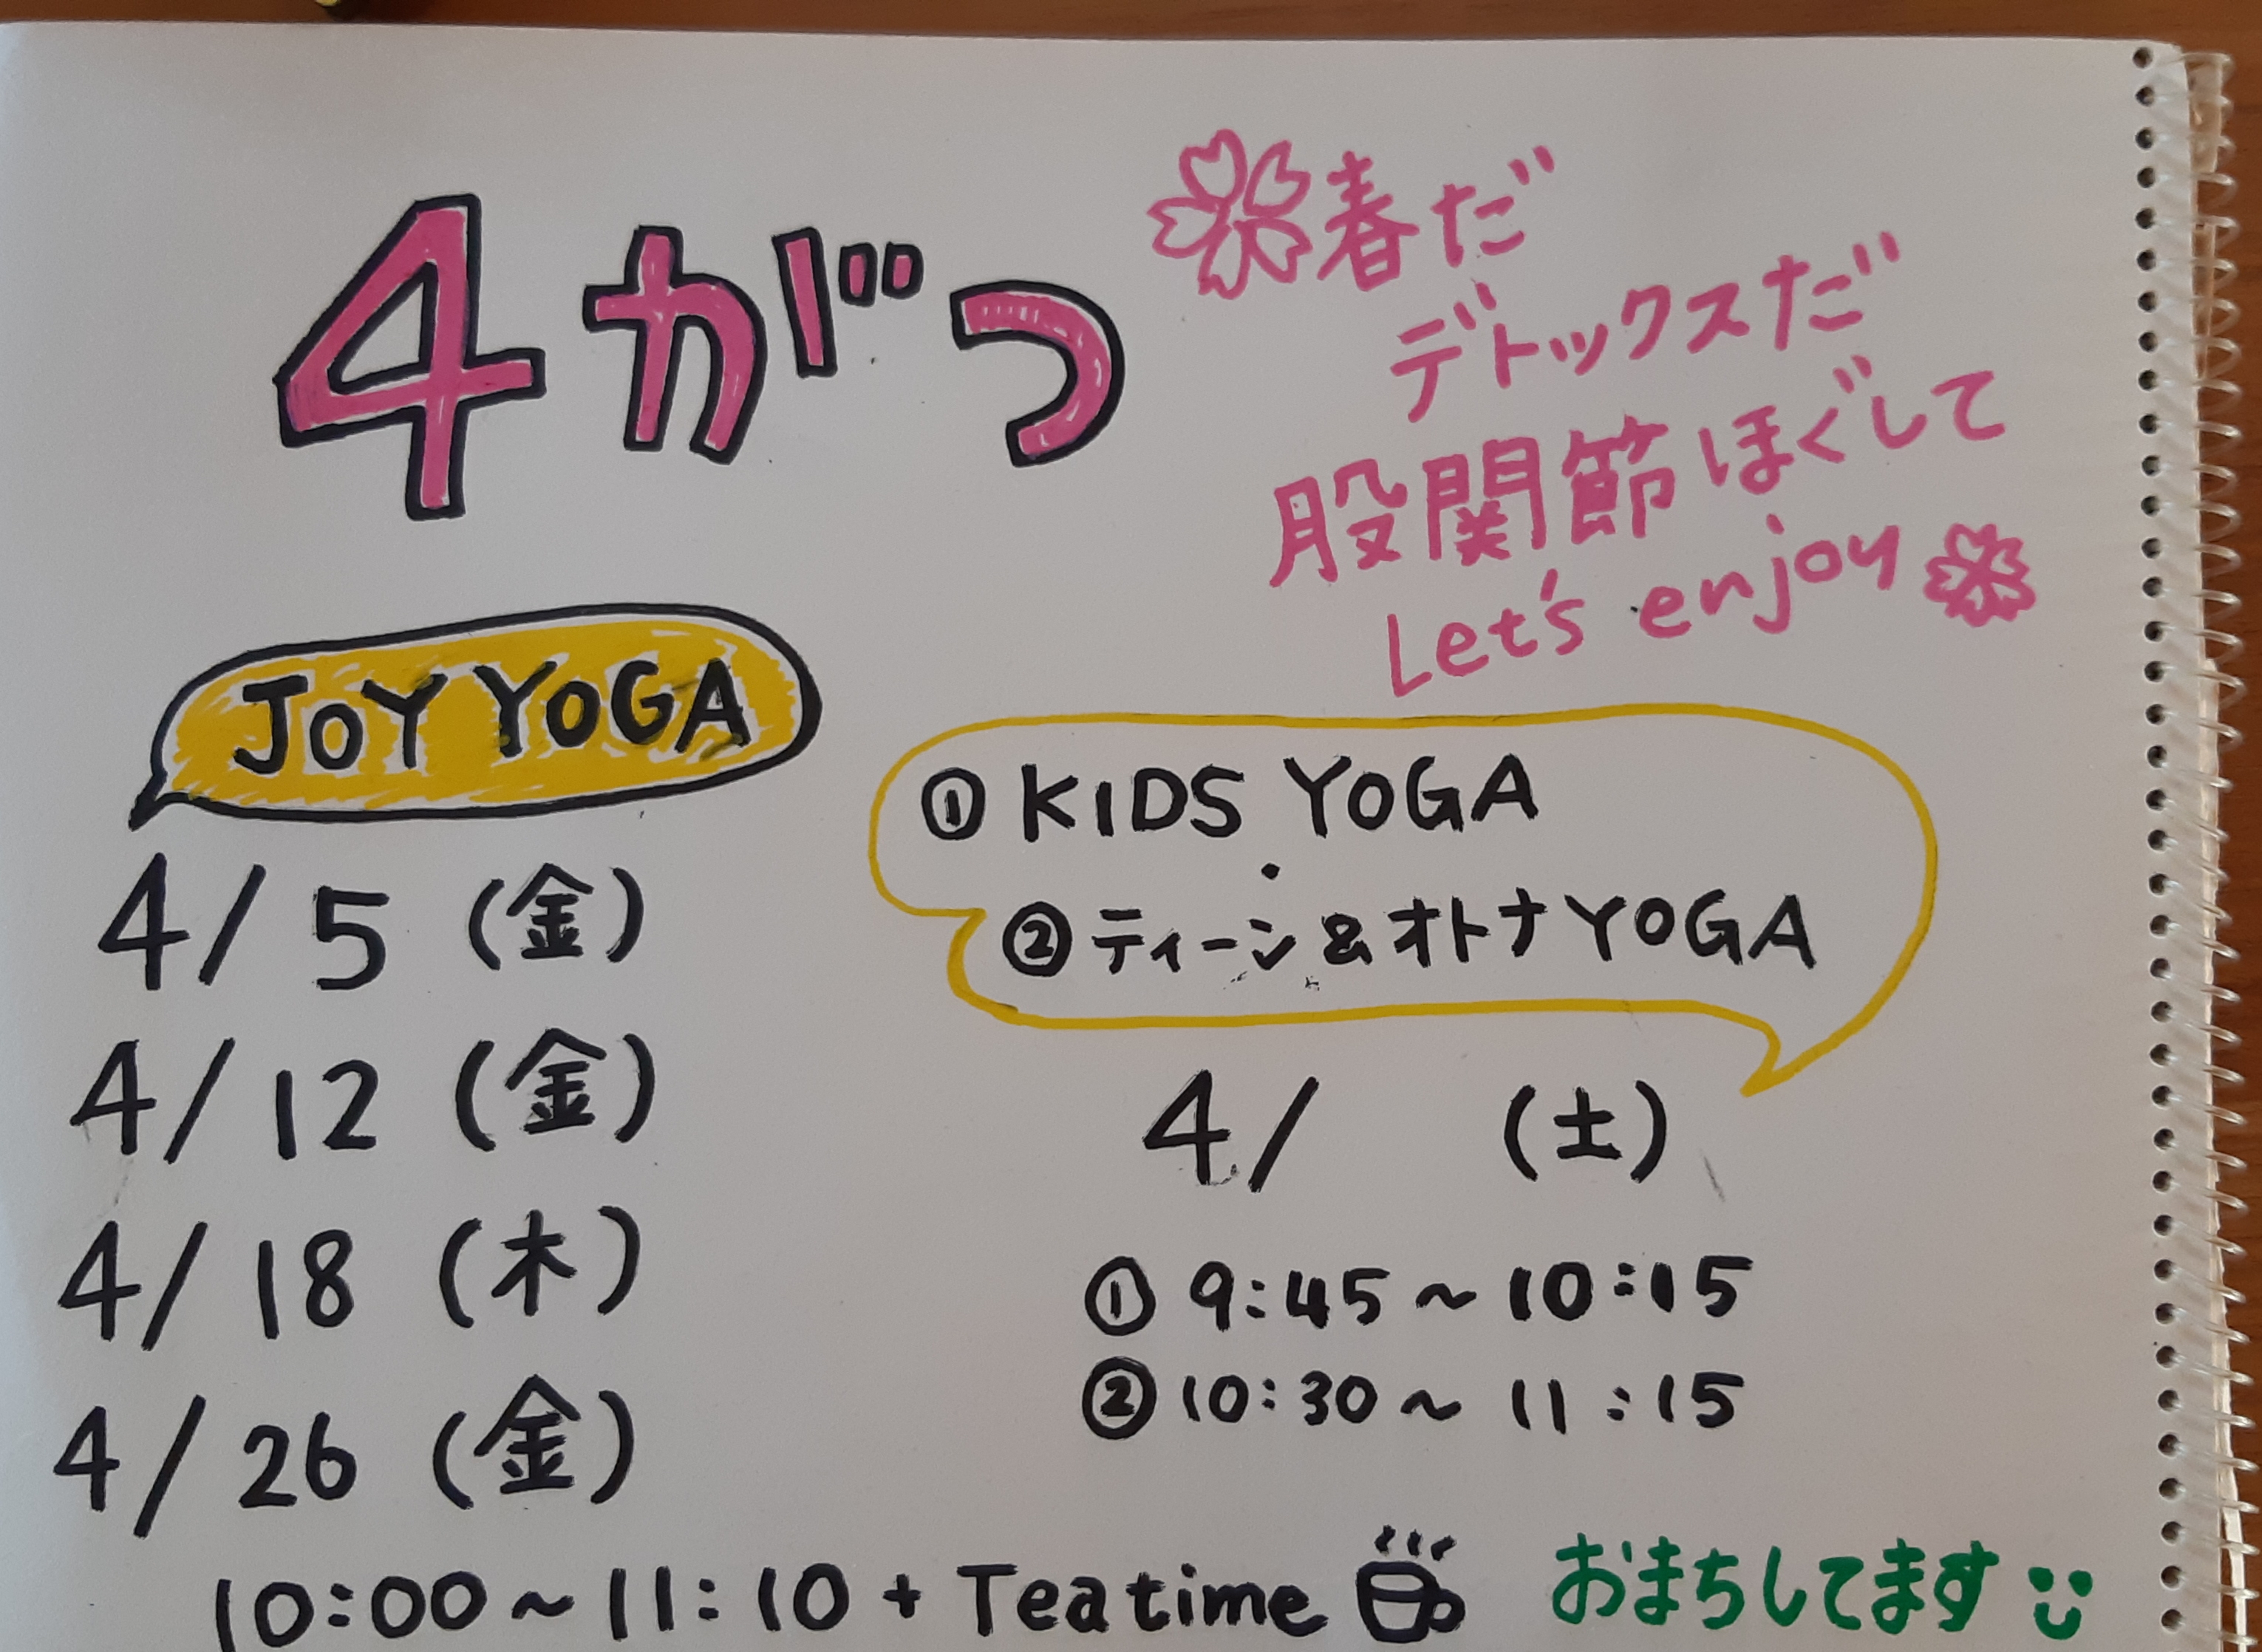 4がつ
春だ
デトックスだ
股関節ほぐして
Let's enjoy
JOY YOGA
4/5(金)
4/12(金)
4/18(木)
4/26(金)
10:00~11:10 + Teatime
① KIDS YOGA
②ティーン&オトナYOGA
4/ (土)
① 9:45~10:15
② 10:30~11:15
おまちしてます